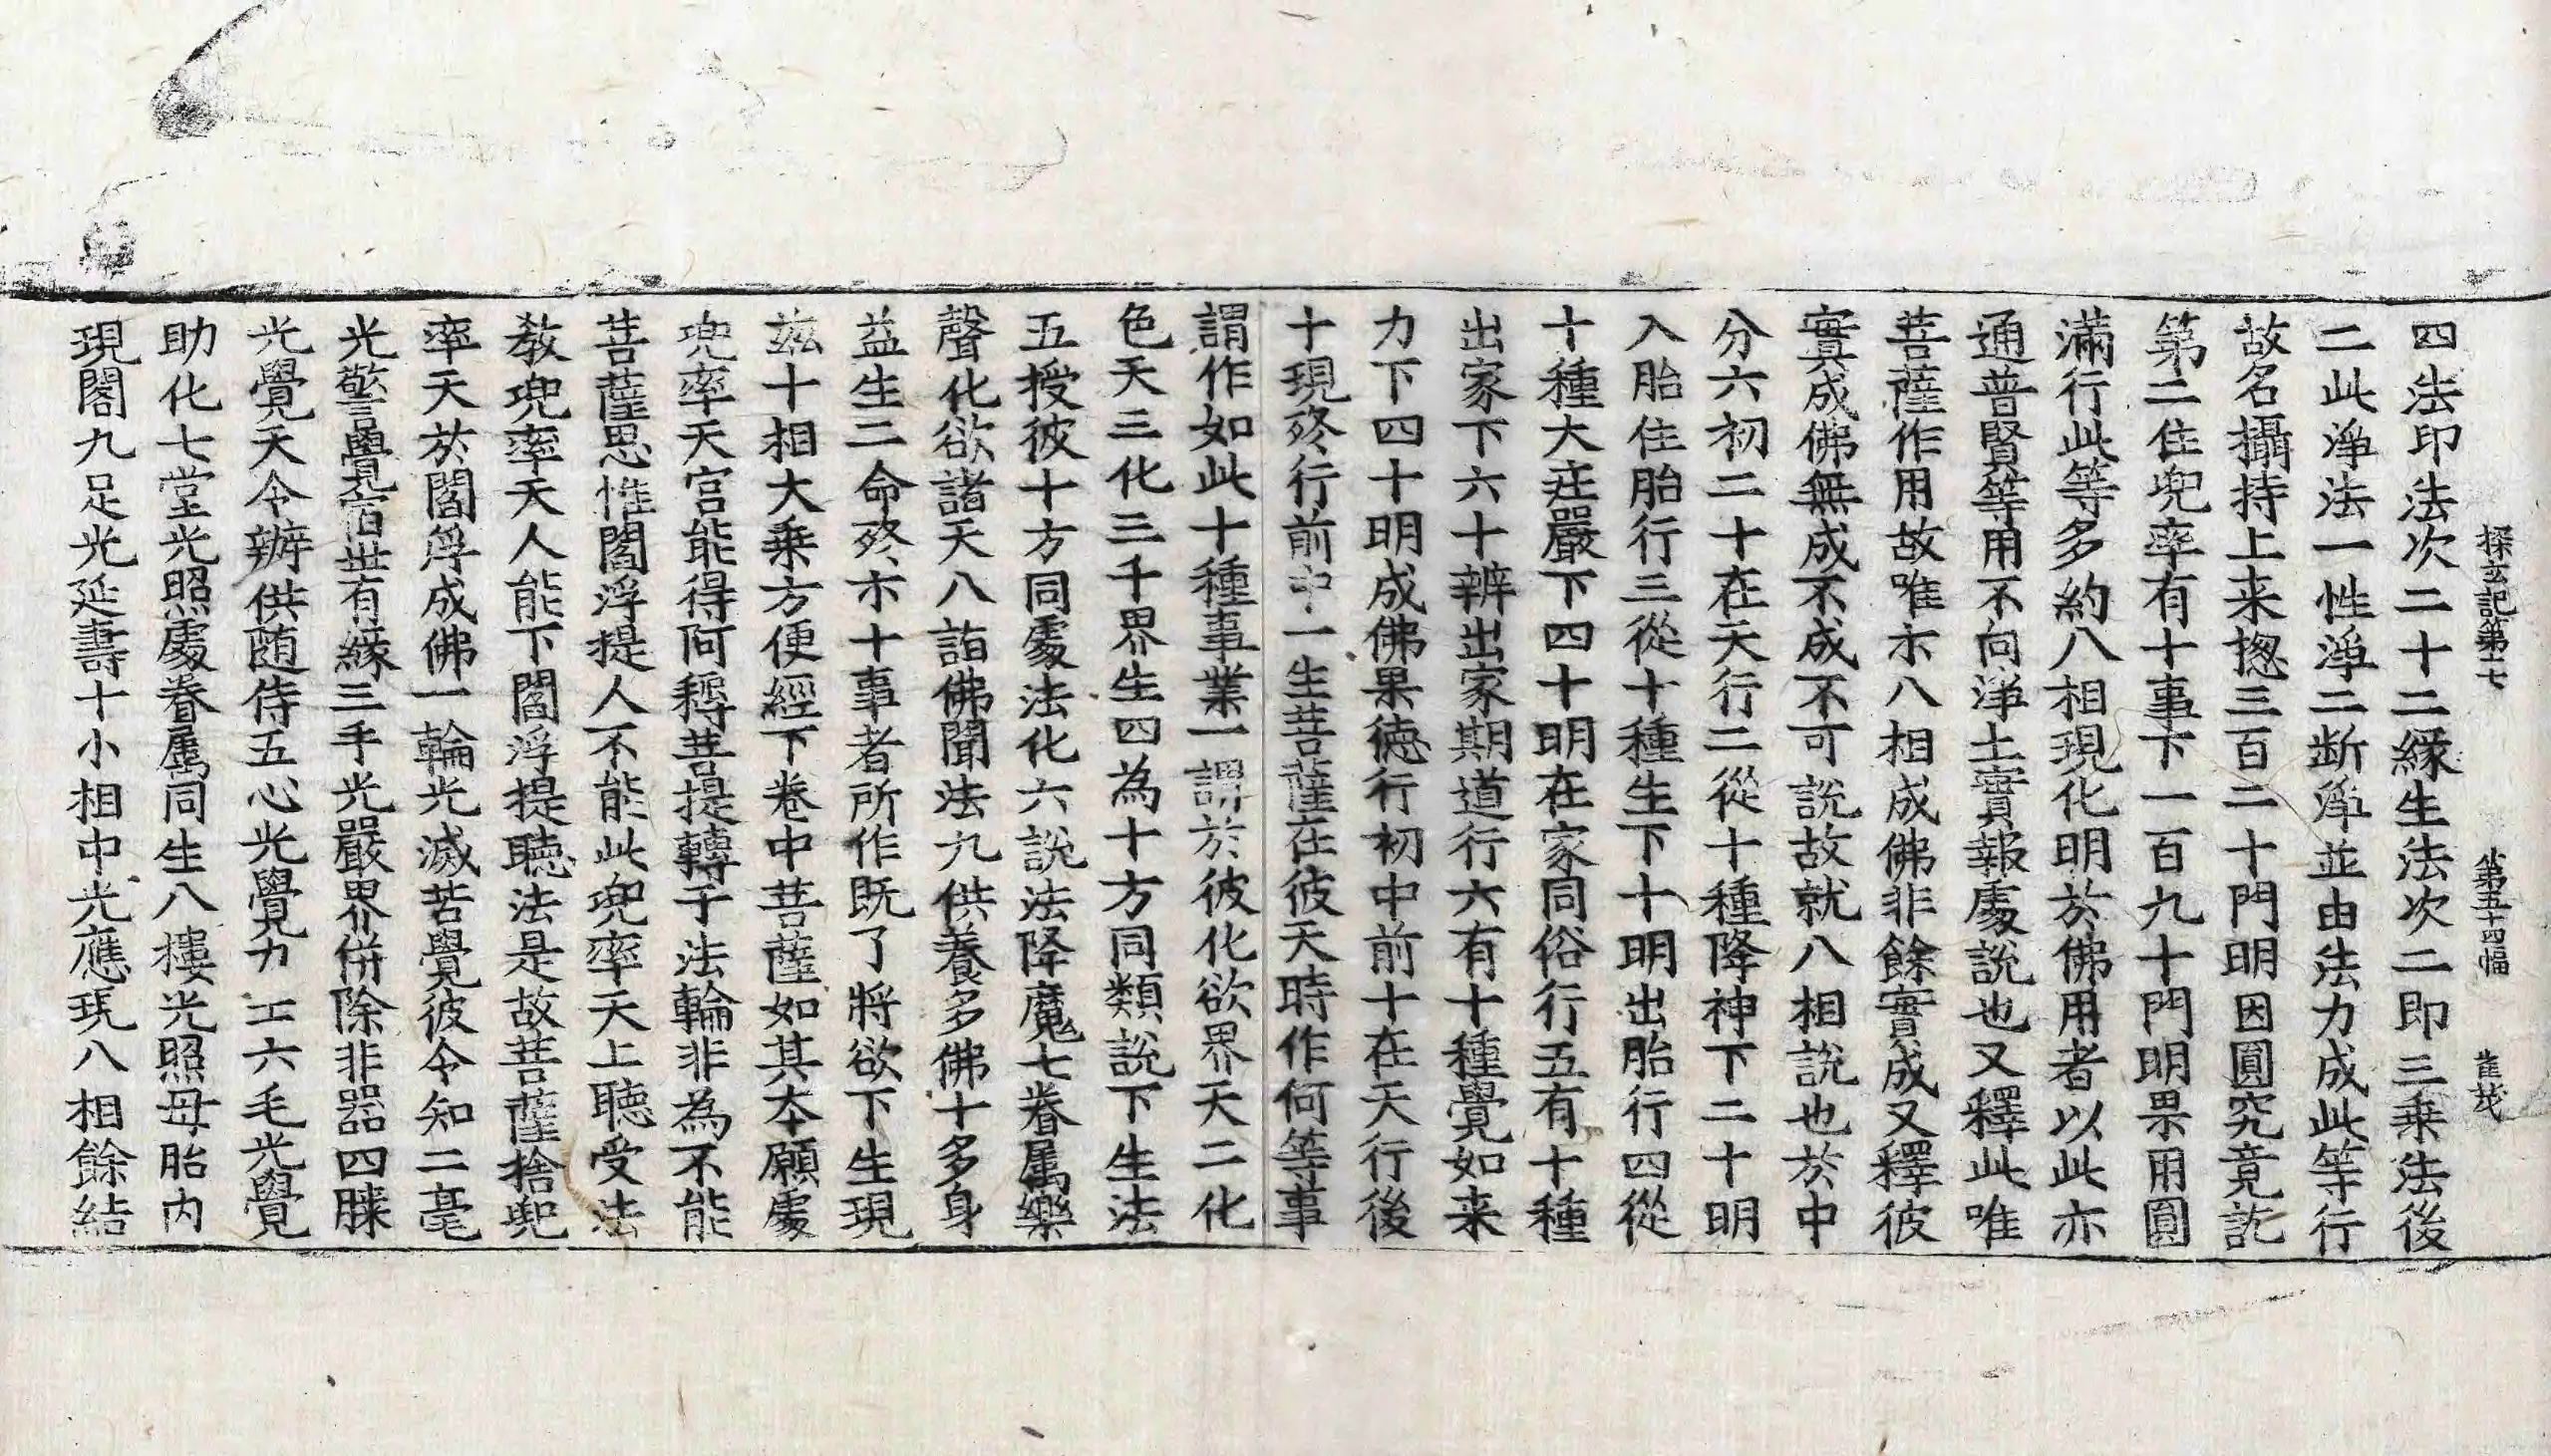 探玄記第十七 第五十四幅 崔茂
四法印法次二十二緣生法次二即三乗法後
二此淨法一性淨二断淨並由法力成此等行
故名攝持上来揔三百二十門明因圓究竟訖
第二住兜率有十事下一百九十門明果用圓
滿行此等多約八相現化明於佛用者以此亦
通普賢等用不向淨土實報處說也又釋此唯
菩薩作用故唯示八相成佛非餘實成又釋彼
實成佛無成不成不可說故就八相說也於中
分六初二十在天行二從十種降神下二十明
入胎住胎行三從十種生下十明出胎行四從
十種大荘嚴下四十明在家同俗行五有十種
出家下六十辨出家期道行六有十種覺如来
力下四十明成佛果德行初中前十在天行後
十現终行前中一生菩薩在彼天時作何等事
謂作如此十種事業一謂於彼化欲界天二化
色天三化三千界生四為十方同類說下生法
五授彼十方同處法化六說法降魔七眷属樂
聲化欲諸天八詣佛聞法九供養多佛十多身
益生二命终示十事者所作既了將欲下生現
茲十相大乗方便經下卷中菩薩如其夲願處
兜率天宫能得阿耨菩提轉于法輪非為不能
菩薩思惟閻浮提人不能此兜率天上聽受法
教兜率天人能下閻浮提聽法是故菩薩捨兜
率天於閻浮成佛一輪光滅苦覺彼令知二毫
光警覺宿世有緣三手光嚴界併除非器四膝
光覺天令辦供随侍五心光覺力士六毛光覺
助化七堂光照處眷属同生八樓光照母胎内
現閣九足光延壽十小相中光應現八相餘結